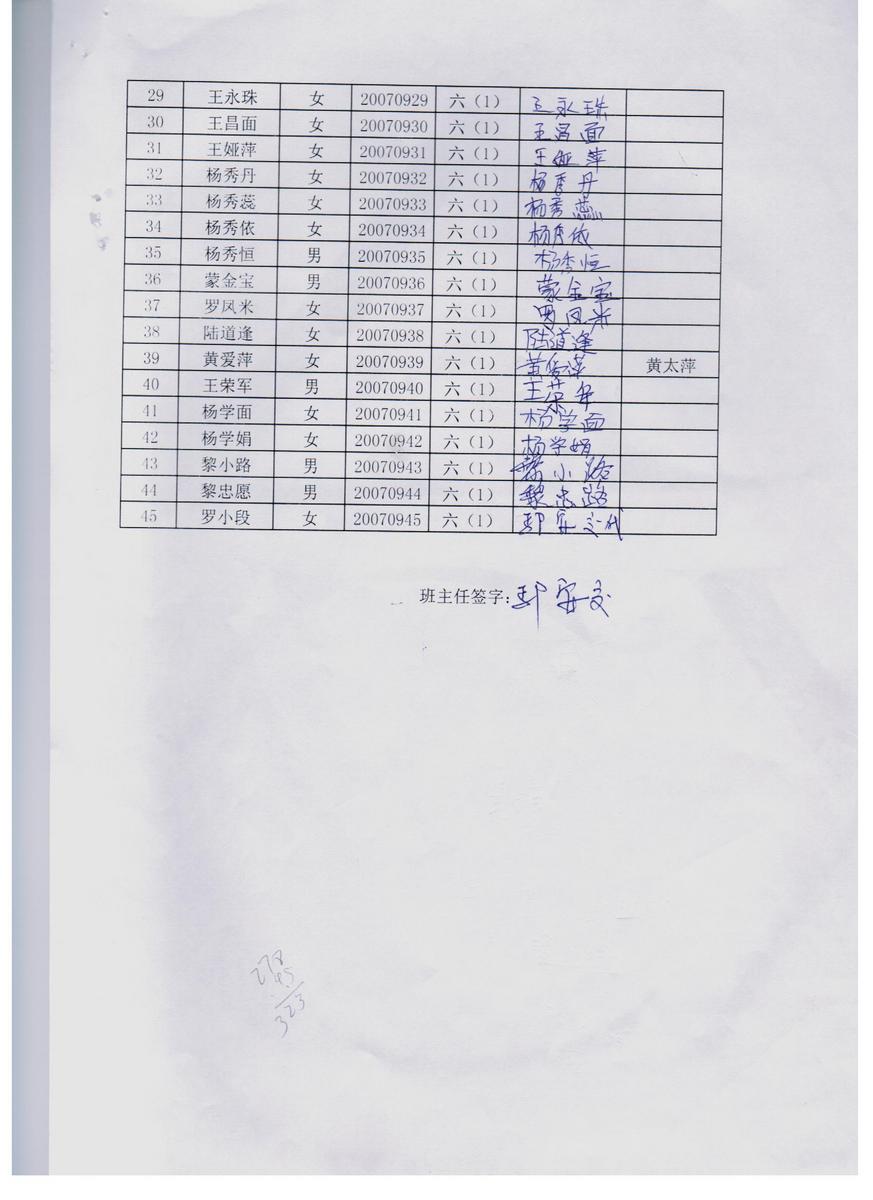 29 王永珠 女 20070929 六（1） 王永珠
30 王昌面 女 20070930 六（1） 王昌面
31 王娅萍 女 20070931 六（1） 王娅萍
32 杨秀丹 女 20070932 六（1） 杨秀丹
33 杨秀蕊 女 20070933 六（1） 杨秀蕊
34 杨秀依 女 20070934 六（1） 杨秀依
35 杨秀恒 男 20070935 六（1） 杨秀恒
36 蒙金宝 男 20070936 六（1） 蒙金宝
37 罗凤米 女 20070937 六（1） 罗凤米
38 陆道逢 女 20070938 六（1） 陆道逢
39 黄爱萍 女 20070939 六（1） 黄爱萍 黄太萍
40 王荣军 男 20070940 六（1） 王荣军
41 杨学面 女 20070941 六（1） 杨学面
42 杨学娟 女 20070942 六（1） 杨学娟
43 黎小路 男 20070943 六（1） 黎小路
44 黎忠愿 男 20070944 六（1） 黎忠路
45 罗小段 女 20070945 六（1）
班主任签字：
278
45
323